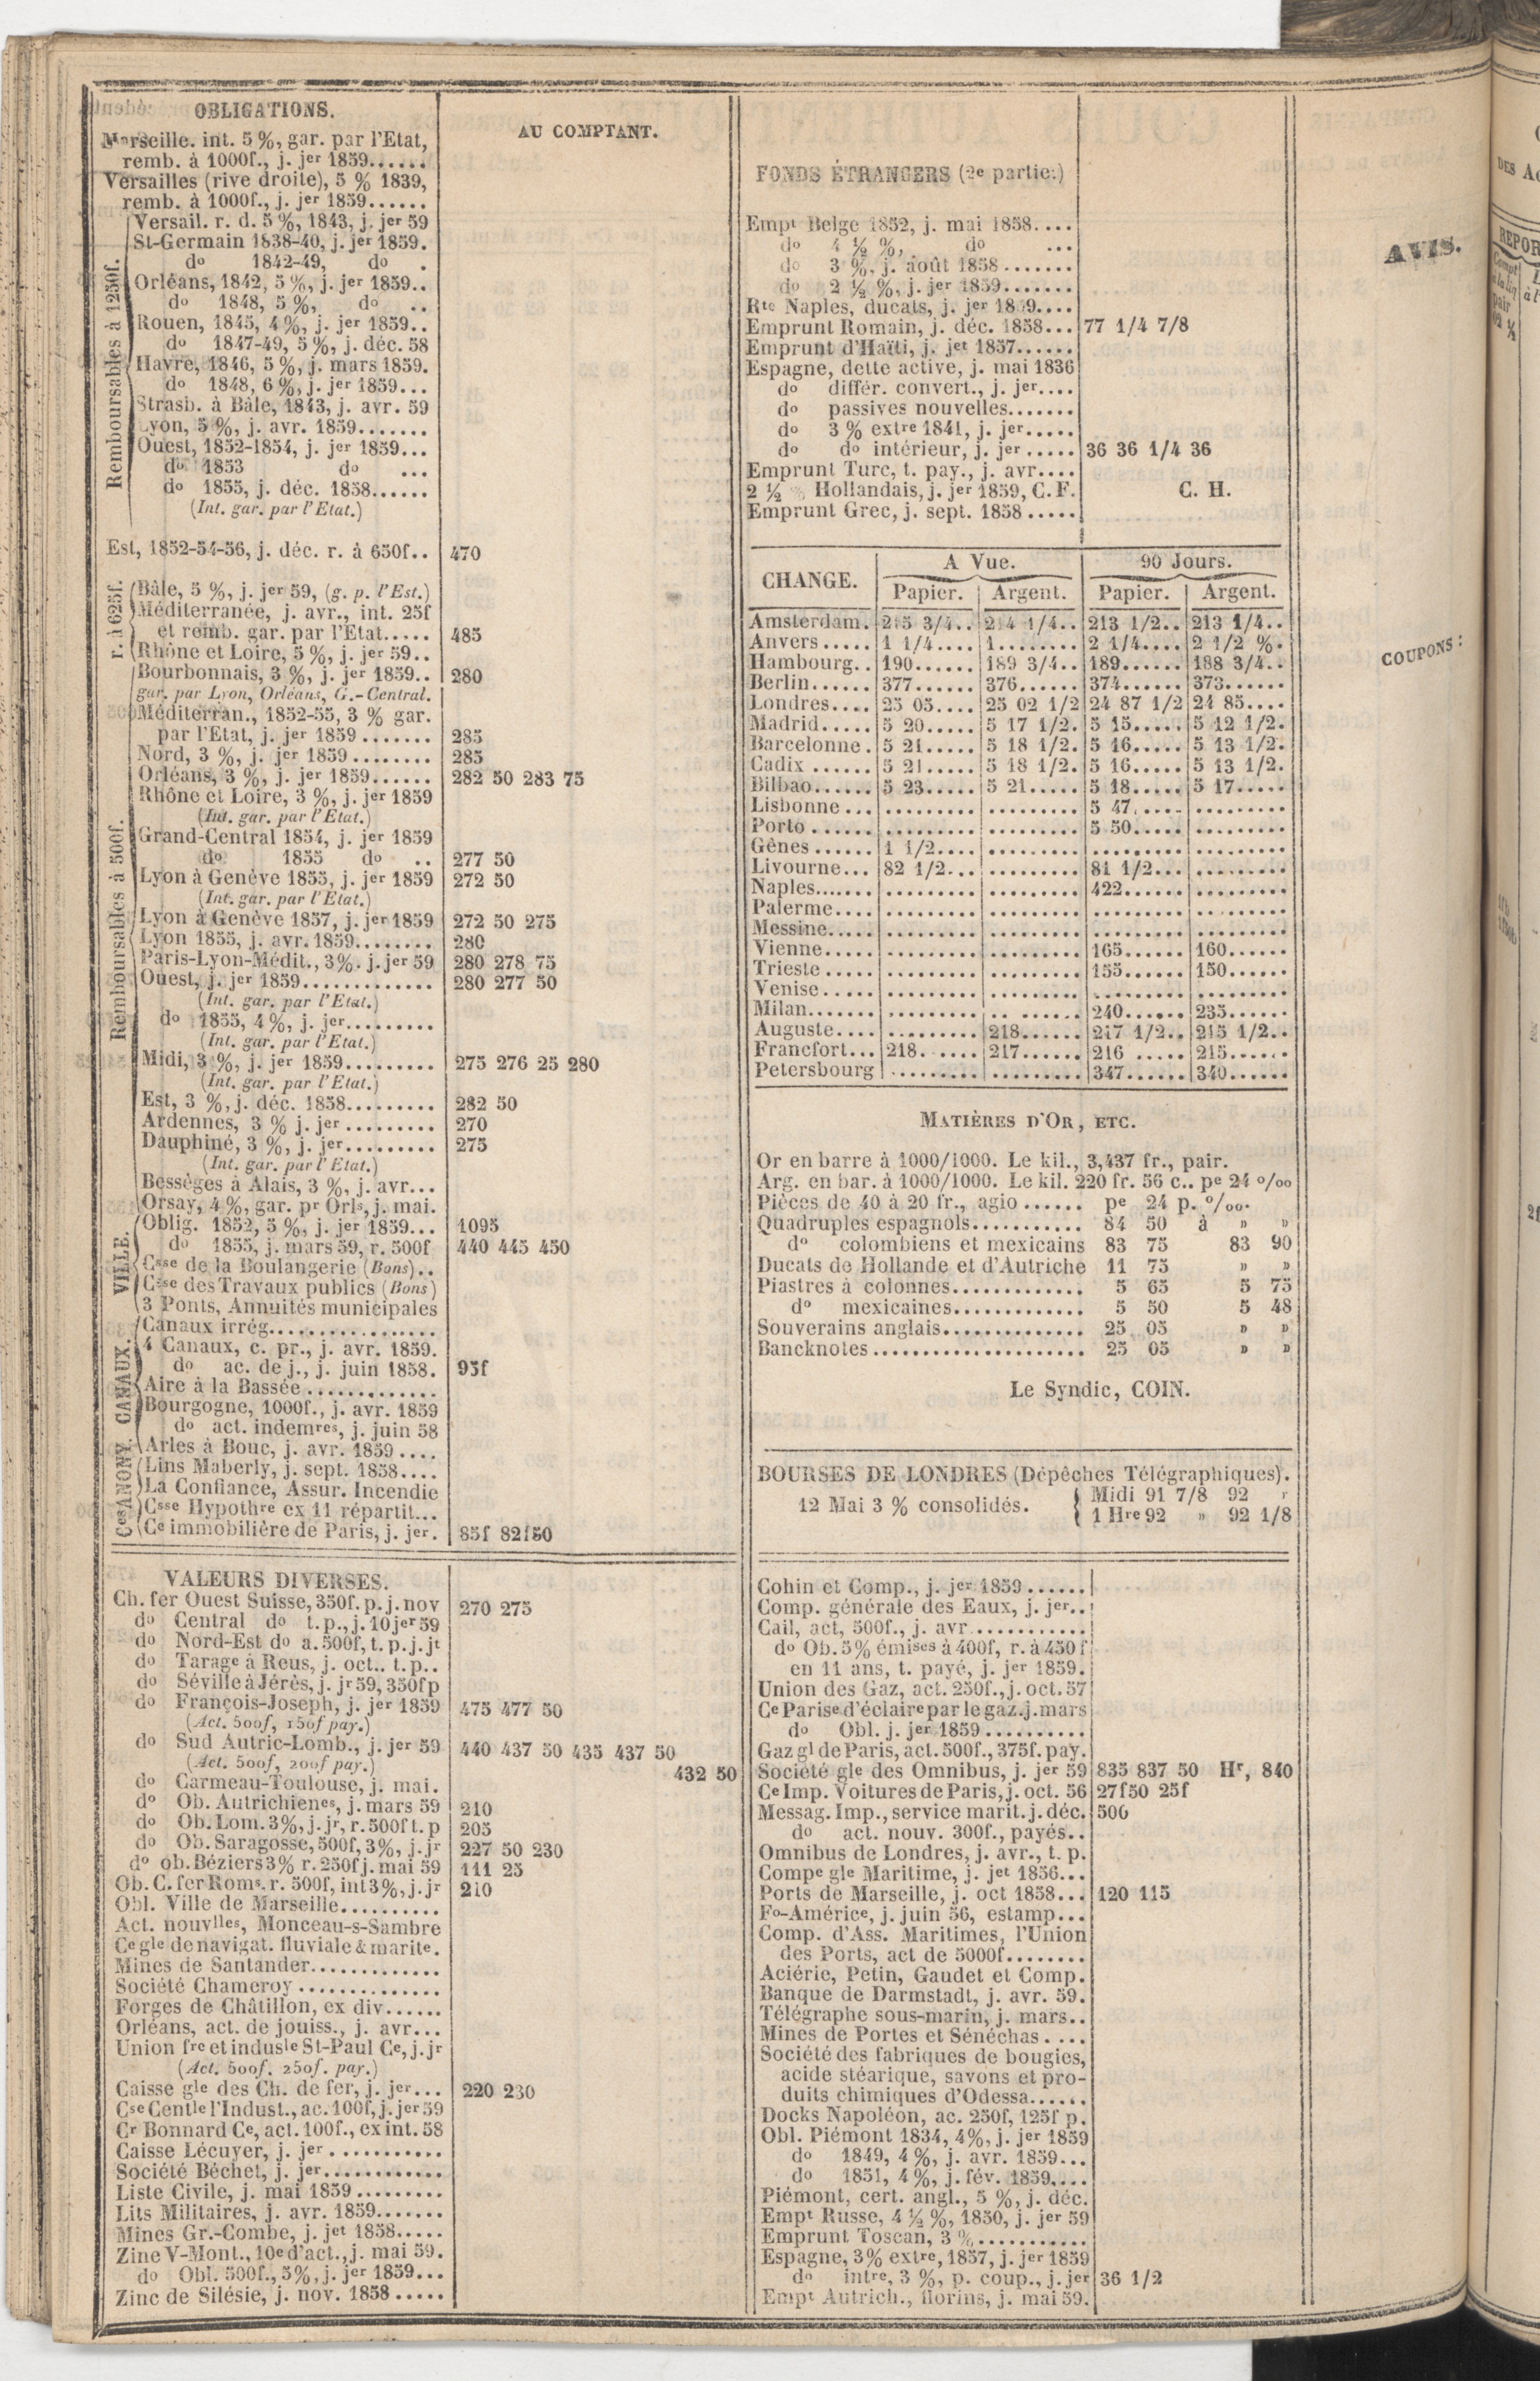 OBLIGATIONS.
AU COMPTANT.
Marseille. int. 5 %, gar. par l'Etat,
remb. à 1000f., j. jer 1859......
Versailles (rive droite), 5 % 1839,
remb. à 1000f., j. jer 1859......
Remboursables à 1250f.
Versail. r. d. 5 %, 1843, j. jer 59
St-Germain 1838-40, j. jer 1859.
do 1842-49, do .
Orléans, 1842, 5 %, j. jer 1859..
do 1848, 5 %, do ..
Rouen, 1845, 4 %, j. jer 1859..
do 1847-49, 5 %, j. déc. 58
Havre, 1846, 5 %, j. mars 1859.
do 1848, 6 %, j. jer 1859...
Strasb. à Bâle, 1843, j. avr. 59
Lyon, 5 %, j. avr. 1859.......
Ouest, 1852-1854, j. jer 1859...
do 1853 do ...
do 1855, j. déc. 1858......
(Int. gar. par l'Etat.)
Est, 1852-54-56, j. déc. r. à 650f.. 470
r. à 625f.
Bâle, 5 %, j. jer 59, (g. p. l'Est.)
Méditerranée, j. avr., int. 25f
et remb. gar. par l'Etat..... 485
Rhône et Loire, 5 %, j. jer 59..
Remboursables à 500f.
Bourbonnais, 3 %, j. jer 1859.. 280
gar. par Lyon, Orléans, G.-Central.
Méditerran., 1852-55, 3 % gar.
par l'Etat, j. jer 1859....... 285
Nord, 3 %, j. jer 1859........ 285
Orléans, 3 %, j. jer 1859...... 282 50 283 75
Rhône et Loire, 3 %, j. jer 1859
(Int. gar. par l'Etat.)
Grand-Central 1854, j. jer 1859
do 1855 do .. 277 50
Lyon à Genève 1855, j. jer 1859 272 50
(Int. gar. par l'Etat.)
Lyon à Genève 1857, j. jer 1859 272 50 275
Lyon 1855, j. avr. 1859........ 280
Paris-Lyon-Médit., 3%. j. jer 59 280 278 75
Ouest, j. jer 1859............. 280 277 50
(Int. gar. par l'Etat.)
do 1855, 4 %, j. jer.........
(Int. gar. par l'Etat.)
Midi, 3 %, j. jer 1859......... 275 276 25 280
(Int. gar. par l'Etat.)
Est, 3 %, j. déc. 1858......... 282 50
Ardennes, 3 % j. jer......... 270
Dauphiné, 3 %, j. jer......... 275
(Int. gar. par l'Etat.)
Bessèges à Alais, 3 %, j. avr...
Orsay, 4 %, gar. pr Orls, j. mai.
VILLE.
Oblig. 1852, 5 %, j. jer 1859... 1095
do 1855, j. mars 59, r. 500f 440 445 450
Csse de la Boulangerie (Bons)..
Csse des Travaux publics (Bons)
3 Ponts, Annuités municipales
CANAUX.
Canaux irrég.................
4 Canaux, c. pr., j. avr. 1859.
do ac. de j., j. juin 1858. 95f
Aire à la Bassée.............
Bourgogne, 1000f., j. avr. 1859
do act. indemres, j. juin 58
Arles à Bouc, j. avr. 1859....
Ces ANONY.
Lins Maberly, j. sept. 1858....
La Confiance, Assur. Incendie
Csse Hypothre ex 11 répartit...
Ce immobilière de Paris, j. jer. 85f 82f50
VALEURS DIVERSES.
Ch. fer Ouest Suisse, 350f. p. j. nov 270 275
do Central do t.p., j. 10 jer 59
do Nord-Est do a. 500f, t. p. j. jt
do Tarage à Reus, j. oct.. t. p..
do Séville à Jérès, j. jr 59, 350f p
do François-Joseph, j. jer 1859 475 477 50
(Act. 500f, 150f pay.)
do Sud Autric-Lomb., j. jer 59 440 437 50 435 437 50
(Act. 500f, 200f pay.) 432 50
do Carmeau-Toulouse, j. mai.
do Ob. Autrichienes, j. mars 59 210
do Ob. Lom. 3%, j. jr, r. 500f t. p 205
do Ob. Saragosse, 500f, 3%, j. jr 227 50 230
do ob. Béziers 3% r. 250f j. mai 59 111 25
Ob. C. fer Roms. r. 500f, int 3%, j. jr 210
Obl. Ville de Marseille..........
Act. nouvlles, Monceau-s-Sambre
Ce gle de navigat. fluviale & marite.
Mines de Santander.............
Société Chameroy..............
Forges de Châtillon, ex div......
Orléans, act. de jouiss., j. avr...
Union fre et indusle St-Paul Ce, j. jr
(Act. 500f. 250f. pay.)
Caisse gle des Ch. de fer, j. jer... 220 230
Cse Centle l'Indust., ac. 100f, j. jer 59
Cr Bonnard Ce, act. 100f., ex int. 58
Caisse Lécuyer, j. jer...........
Société Béchet, j. jer............
Liste Civile, j. mai 1859.........
Lits Militaires, j. avr. 1859.......
Mines Gr.-Combe, j. jet 1858.....
Zinc V-Mont., 10e d'act., j. mai 59.
do Obl. 500f., 5%, j. jer 1859...
Zinc de Silésie, j. nov. 1858.....
FONDS ÉTRANGERS (2e partie.)
Empt Belge 1852, j. mai 1858....
do 4 ½ %, do ...
do 3 %, j. août 1858.......
do 2 ½ %, j. jer 1859.......
Rte Naples, ducats, j. jer 1859....
Emprunt Romain, j. déc. 1858... 77 1/4 7/8
Emprunt d'Haïti, j. jet 1857......
Espagne, dette active, j. mai 1836
do différ. convert., j. jer....
do passives nouvelles.......
do 3 % extre 1841, j. jer.....
do do intérieur, j. jer..... 36 36 1/4 36
Emprunt Turc, t. pay., j. avr....
2 ½ % Hollandais, j. jer 1859, C. F. C. H.
Emprunt Grec, j. sept. 1858.....
CHANGE. A Vue. 90 Jours.
Papier. Argent. Papier. Argent.
Amsterdam. 215 3/4.. 214 1/4.. 213 1/2.. 213 1/4..
Anvers..... 1 1/4.... 1......... 2 1/4.... 2 1/2 %.
Hambourg.. 190...... 189 3/4.. 189...... 188 3/4..
Berlin...... 377...... 376...... 374...... 373......
Londres.... 25 05.... 25 02 1/2 24 87 1/2 24 85....
Madrid..... 5 20..... 5 17 1/2. 5 15..... 5 12 1/2.
Barcelonne. 5 21..... 5 18 1/2. 5 16..... 5 13 1/2.
Cadix...... 5 21..... 5 18 1/2. 5 16..... 5 13 1/2.
Bilbao...... 5 23..... 5 21..... 5 18..... 5 17.....
Lisbonne... ......... ......... 5 47..... .........
Porto...... ......... ......... 5 50..... .........
Gênes...... 1 1/2.... ......... ......... .........
Livourne... 82 1/2... ......... 81 1/2... .........
Naples....... ......... ......... 422...... .........
Palerme.... ......... ......... ......... .........
Messine..... ......... ......... ......... .........
Vienne..... ......... ......... 165...... 160......
Trieste..... ......... ......... 155...... 150......
Venise..... ......... ......... ......... .........
Milan....... ......... ......... 240...... 235......
Auguste.... ......... 218...... 217 1/2.. 215 1/2..
Francfort... 218...... 217...... 216...... 215......
Petersbourg ......... ......... 347...... 340......
MATIÈRES D'OR, ETC.
Or en barre à 1000/1000. Le kil., 3,437 fr., pair.
Arg. en bar. à 1000/1000. Le kil. 220 fr. 56 c.. pe 24 o/oo
Pièces de 40 à 20 fr., agio...... pe 24 p. o/oo.
Quadruples espagnols........... 84 50 à » »
do colombiens et mexicains 83 75 83 90
Ducats de Hollande et d'Autriche 11 75 » »
Piastres à colonnes............. 5 65 5 75
do mexicaines............. 5 50 5 48
Souverains anglais.............. 25 05 » »
Bancknotes..................... 25 05 » »
Le Syndic, COIN.
BOURSES DE LONDRES (Dépêches Télégraphiques).
12 Mai 3 % consolidés.
Midi 91 7/8 92
1 Hre 92 » 92 1/8
Cohin et Comp., j. jer 1859......
Comp. générale des Eaux, j. jer..
Cail, act, 500f., j. avr...........
do Ob. 5% émises à 400f, r. à 450f
en 11 ans, t. payé, j. jer 1859.
Union des Gaz, act. 250f., j. oct. 57
Ce Parise d'éclaire par le gaz. j. mars
do Obl. j. jer 1859..........
Gaz gl de Paris, act. 500f., 375f. pay.
Société gle des Omnibus, j. jer 59 835 837 50 Hr, 840
Ce Imp. Voitures de Paris, j. oct. 56 27f50 25f
Messag. Imp., service marit. j. déc. 506
do act. nouv. 300f., payés..
Omnibus de Londres, j. avr., t. p.
Compe gle Maritime, j. jet 1856...
Ports de Marseille, j. oct 1858... 120 115
Fo-Américe, j. juin 56, estamp...
Comp. d'Ass. Maritimes, l'Union
des Ports, act de 5000f........
Aciérie, Petin, Gaudet et Comp.
Banque de Darmstadt, j. avr. 59.
Télégraphe sous-marin, j. mars..
Mines de Portes et Sénéchas....
Société des fabriques de bougies,
acide stéarique, savons et pro-
duits chimiques d'Odessa......
Docks Napoléon, ac. 250f, 125f p.
Obl. Piémont 1834, 4%, j. jer 1859
do 1849, 4 %, j. avr. 1859...
do 1851, 4 %, j. fév. 1859....
Piémont, cert. angl., 5 %, j. déc.
Empt Russe, 4 ½ %, 1850, j. jer 59
Emprunt Toscan, 3 %...........
Espagne, 3% extre, 1857, j. jer 1859
do intre, 3 %, p. coup., j. jer 36 1/2
Empt Autrich., florins, j. mai 59.
AVIS.
COUPONS:
DES
REPOR
Compt
pair